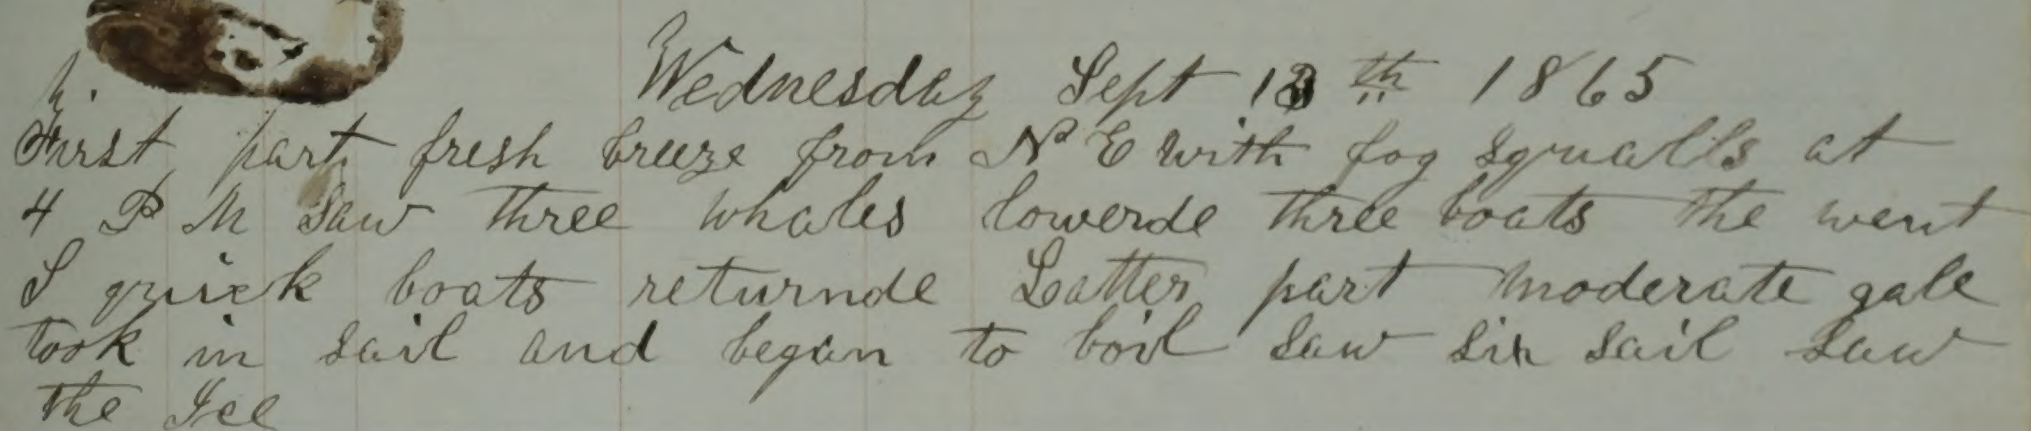 Wednesday Sept 13th 1865
First part fresh breeze from N E with fog squalls at
4 P M saw three whales lowerde three boats the went
S quick boats returnde Latter part moderate gale
took in sail and began to boil saw six sail saw
the Ice